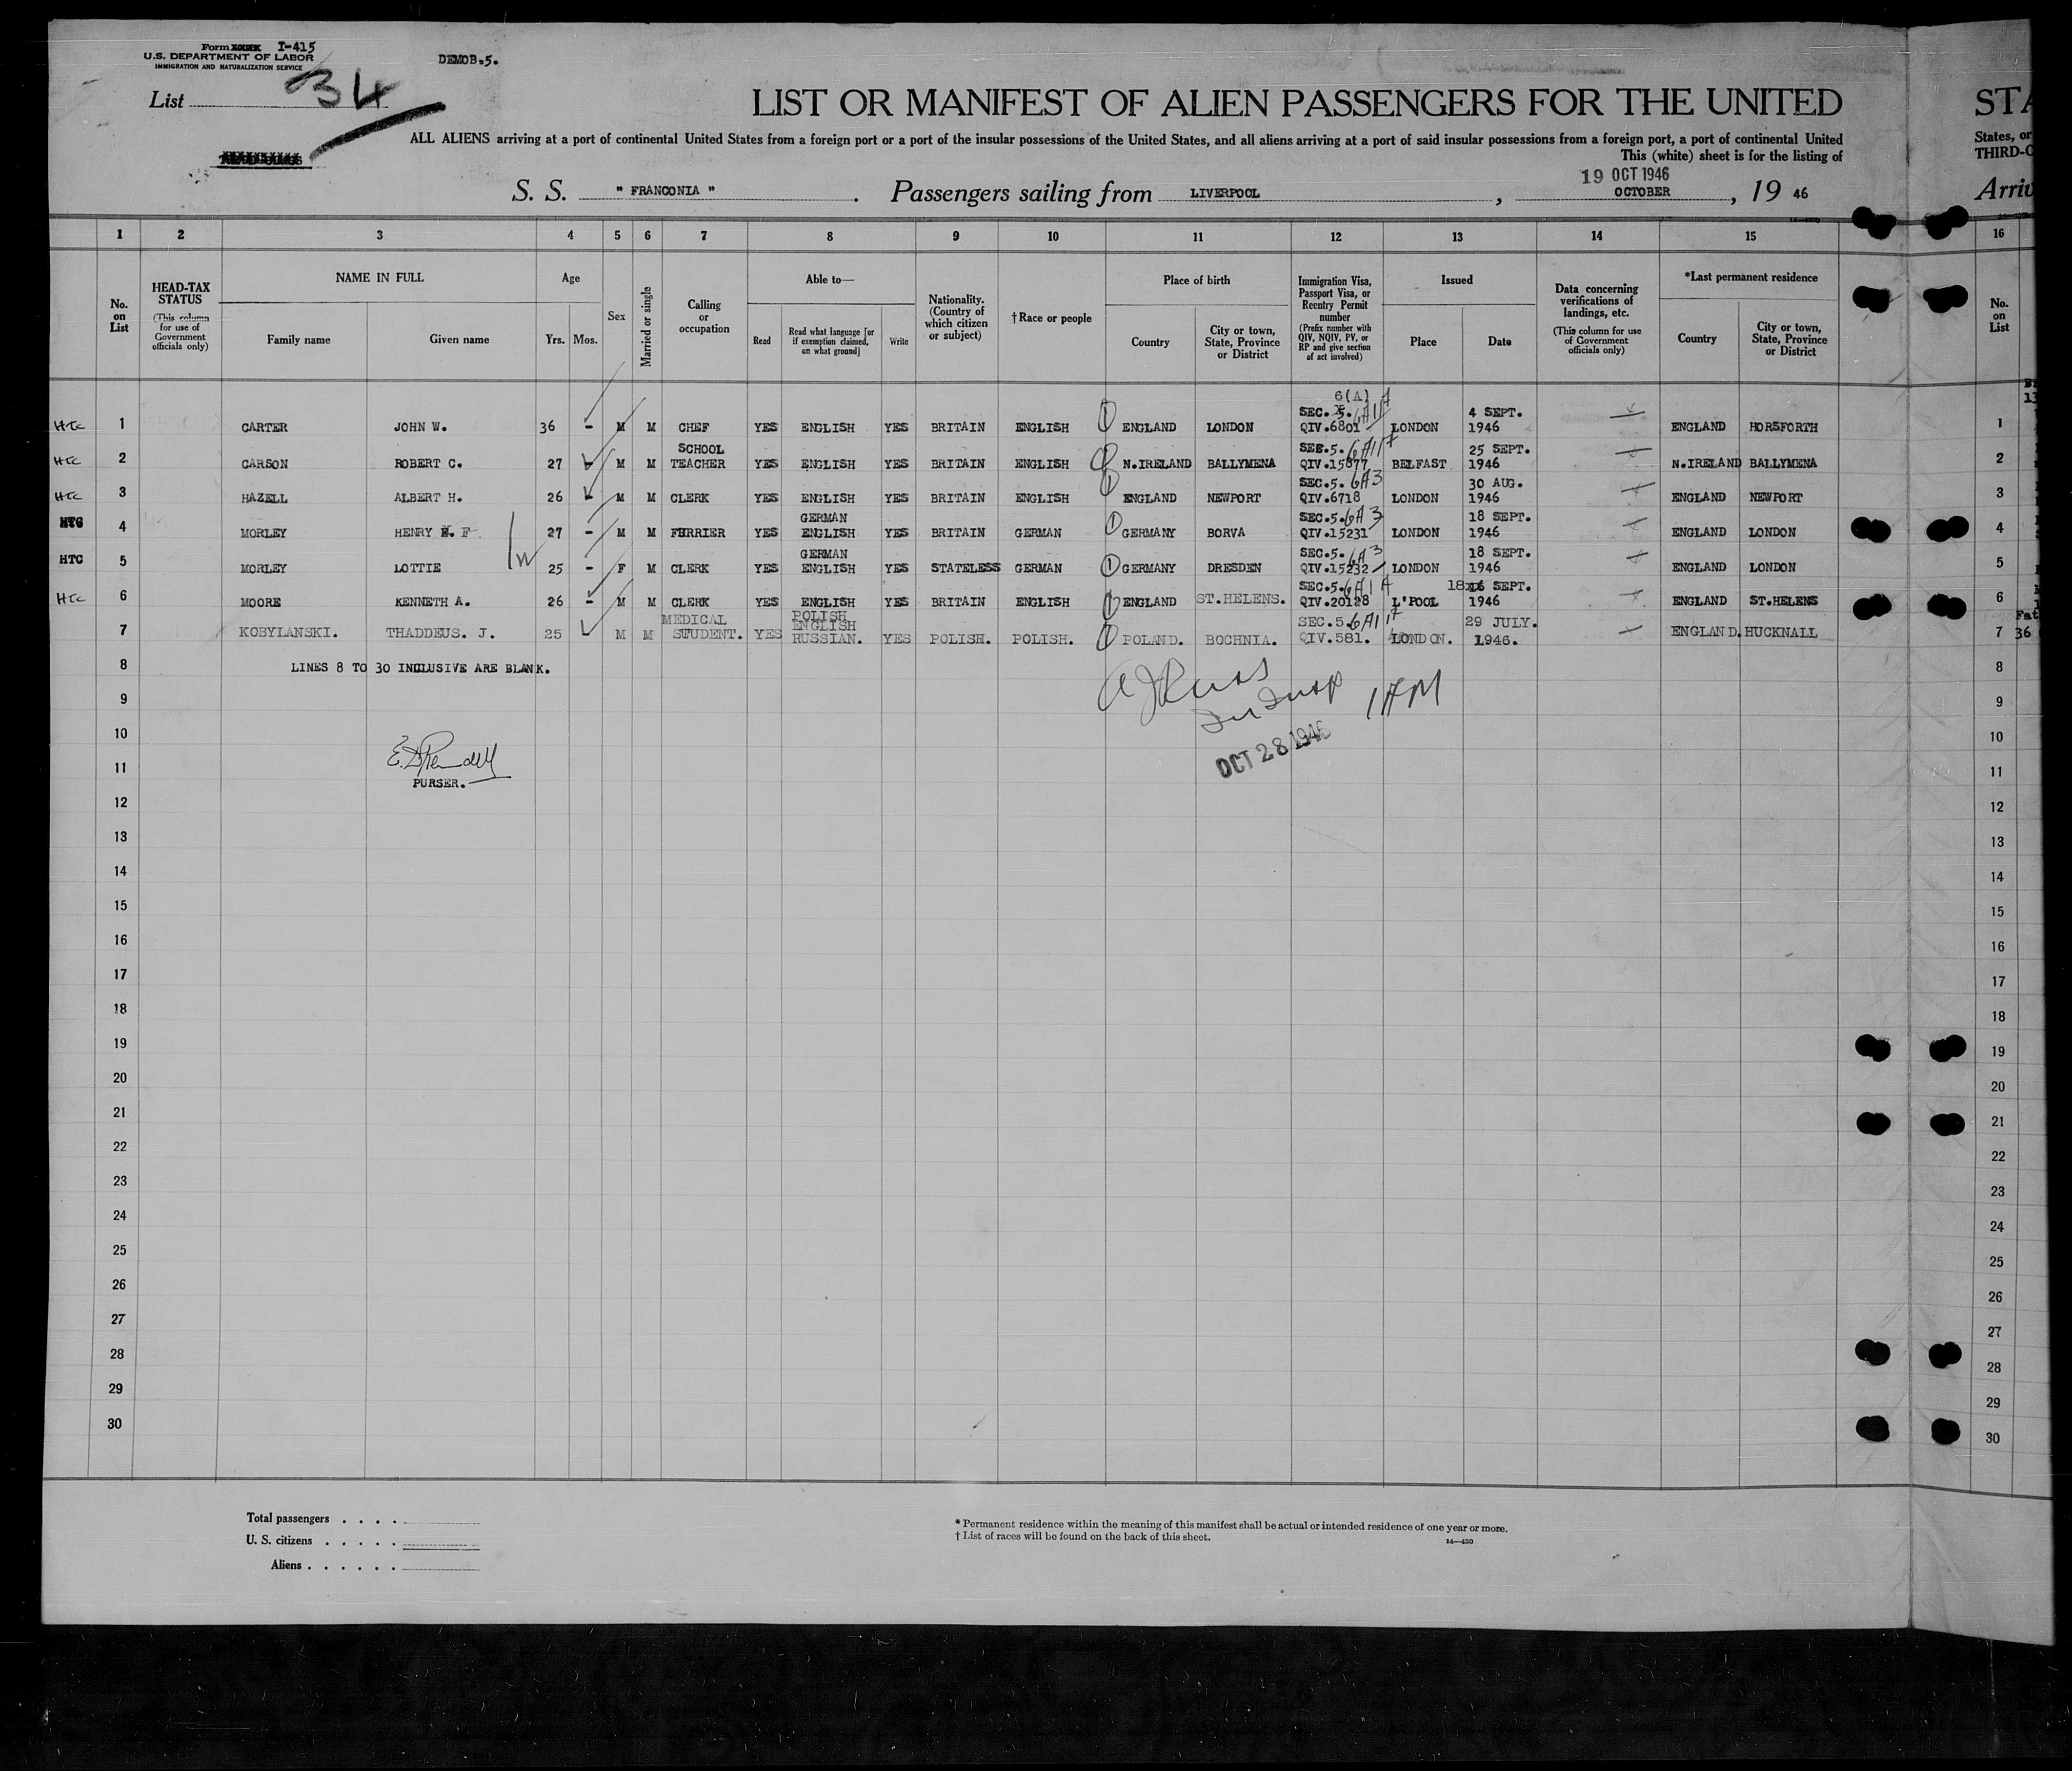 Form I-415
U.S. DEPARTMENT OF LABOR
IMMIGRATION AND NATURALIZATION SERVICE
DEMOB.5.
List 34
LIST OR MANIFEST OF ALIEN PASSENGERS FOR THE UNITED STA
ALL ALIENS arriving at a port of continental United States from a foreign port or a port of the insular possessions of the United States, and all aliens arriving at a port of said insular possessions from a foreign port, a port of continental United States, or
This (white) sheet is for the listing of THIRD-C
19 OCT 1946
S. S. " FRANCONIA " . Passengers sailing from LIVERPOOL , OCTOBER , 19 46 Arriv
1 2 3 4 5 6 7 8 9 10 11 12 13 14 15 16
No. on List
HEAD-TAX STATUS (This column for use of Government officials only)
NAME IN FULL Family name Given name
Age Yrs. Mos.
Sex
Married or single
Calling or occupation
Able to— Read Read what language [or if exemption claimed, on what ground] Write
Nationality. (Country of which citizen or subject)
†Race or people
Place of birth Country City or town, State, Province or District
Immigration Visa, Passport Visa, or Reentry Permit number (Prefix number with QIV, NQIV, PV, or RP and give section of act involved)
Issued Place Date
Data concerning verifications of landings, etc. (This column for use of Government officials only)
*Last permanent residence Country City or town, State, Province or District
No. on List
6(A)
HTC 1 CARTER JOHN W. 36 - M M CHEF YES ENGLISH YES BRITAIN ENGLISH ENGLAND LONDON SEC. 5. 6A1A QIV.6801 LONDON 4 SEPT. 1946 ENGLAND HORSFORTH 1
HTC 2 CARSON ROBERT C. 27 M M SCHOOL TEACHER YES ENGLISH YES BRITAIN ENGLISH N.IRELAND BALLYMENA SEC.5. 6A1A QIV.15877 BELFAST 25 SEPT. 1946 N.IRELAND BALLYMENA 2
HTC 3 HAZELL ALBERT H. 26 - M M CLERK YES ENGLISH YES BRITAIN ENGLISH ENGLAND NEWPORT SEC.5. 6A3 QIV.6718 LONDON 30 AUG. 1946 ENGLAND NEWPORT 3
HTC 4 MORLEY HENRY F 27 - M M FURRIER YES GERMAN ENGLISH YES BRITAIN GERMAN GERMANY BORVA SEC.5. 6A3 QIV.15231 LONDON 18 SEPT. 1946 ENGLAND LONDON 4
HTC 5 MORLEY LOTTIE 25 - F M CLERK YES GERMAN ENGLISH YES STATELESS GERMAN GERMANY DRESDEN SEC.5. 6A3 QIV.15232 LONDON 18 SEPT. 1946 ENGLAND LONDON 5
HTC 6 MOORE KENNETH A. 26 - M M CLERK YES ENGLISH YES BRITAIN ENGLISH ENGLAND ST.HELENS. SEC.5. 6A1A QIV.20128 L'POOL 18 SEPT. 1946 ENGLAND ST.HELENS 6
7 KOBYLANSKI. THADDEUS. J. 25 M M MEDICAL STUDENT. YES POLISH ENGLISH RUSSIAN. YES POLISH. POLISH. POLAND. BOCHNIA. SEC.5. 6A1A QIV.581. LONDON. 29 JULY. 1946. ENGLAND. HUCKNALL 7 36
8 LINES 8 TO 30 INCLUSIVE ARE BLANK. 8
9 9
10 10
OCT 28 1946
11 PURSER. 11
12 12
13 13
14 14
15 15
16 16
17 17
18 18
19 19
20 20
21 21
22 22
23 23
24 24
25 25
26 26
27 27
28 28
29 29
30 30
Total passengers . . . .
U. S. citizens . . . . .
Aliens . . . . . .
* Permanent residence within the meaning of this manifest shall be actual or intended residence of one year or more.
† List of races will be found on the back of this sheet.
14—430